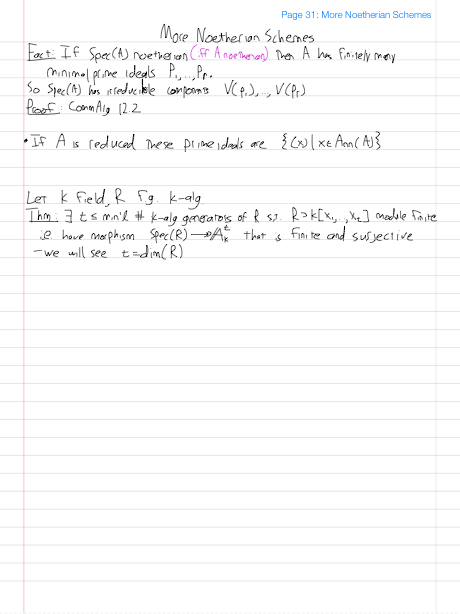 Page 31: More Noetherian Schemes
More Noetherian Schemes
Fact: If Spec(A) noetherian (iff A noetherian) then A has finitely many
minimal prime ideals P₁,...,Pᵣ.
So Spec(A) has irreducible components V(p₁),...,V(pᵣ)
Proof: CommAlg 12.2
• If A is reduced these prime ideals are {(x) | x∈Ann(A)}
Let k field, R f.g. k-alg
Thm: ∃ t ≤ min'l # k-alg generators of R s.t. R⊃k[x₁,...,xₜ] module finite
i.e. have morphism Spec(R) → 𝔸ₖᵗ that is finite and surjective
- we will see t=dim(R)